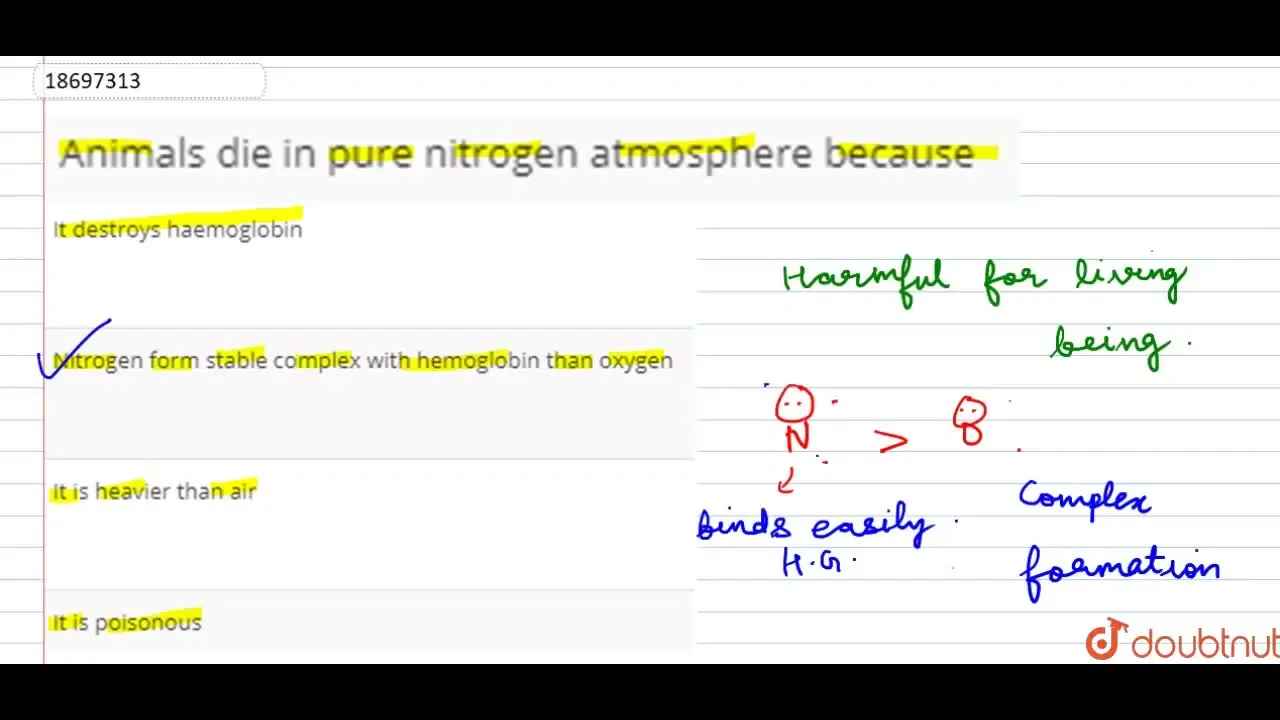 18697313
Animals die in pure nitrogen atmosphere because
It destroys haemoglobin
Nitrogen form stable complex with hemoglobin than oxygen
It is heavier than air
It is poisonous
Harmful for living
being.
N > O
binds easily
H.G.
Complex
formation
doubtnut